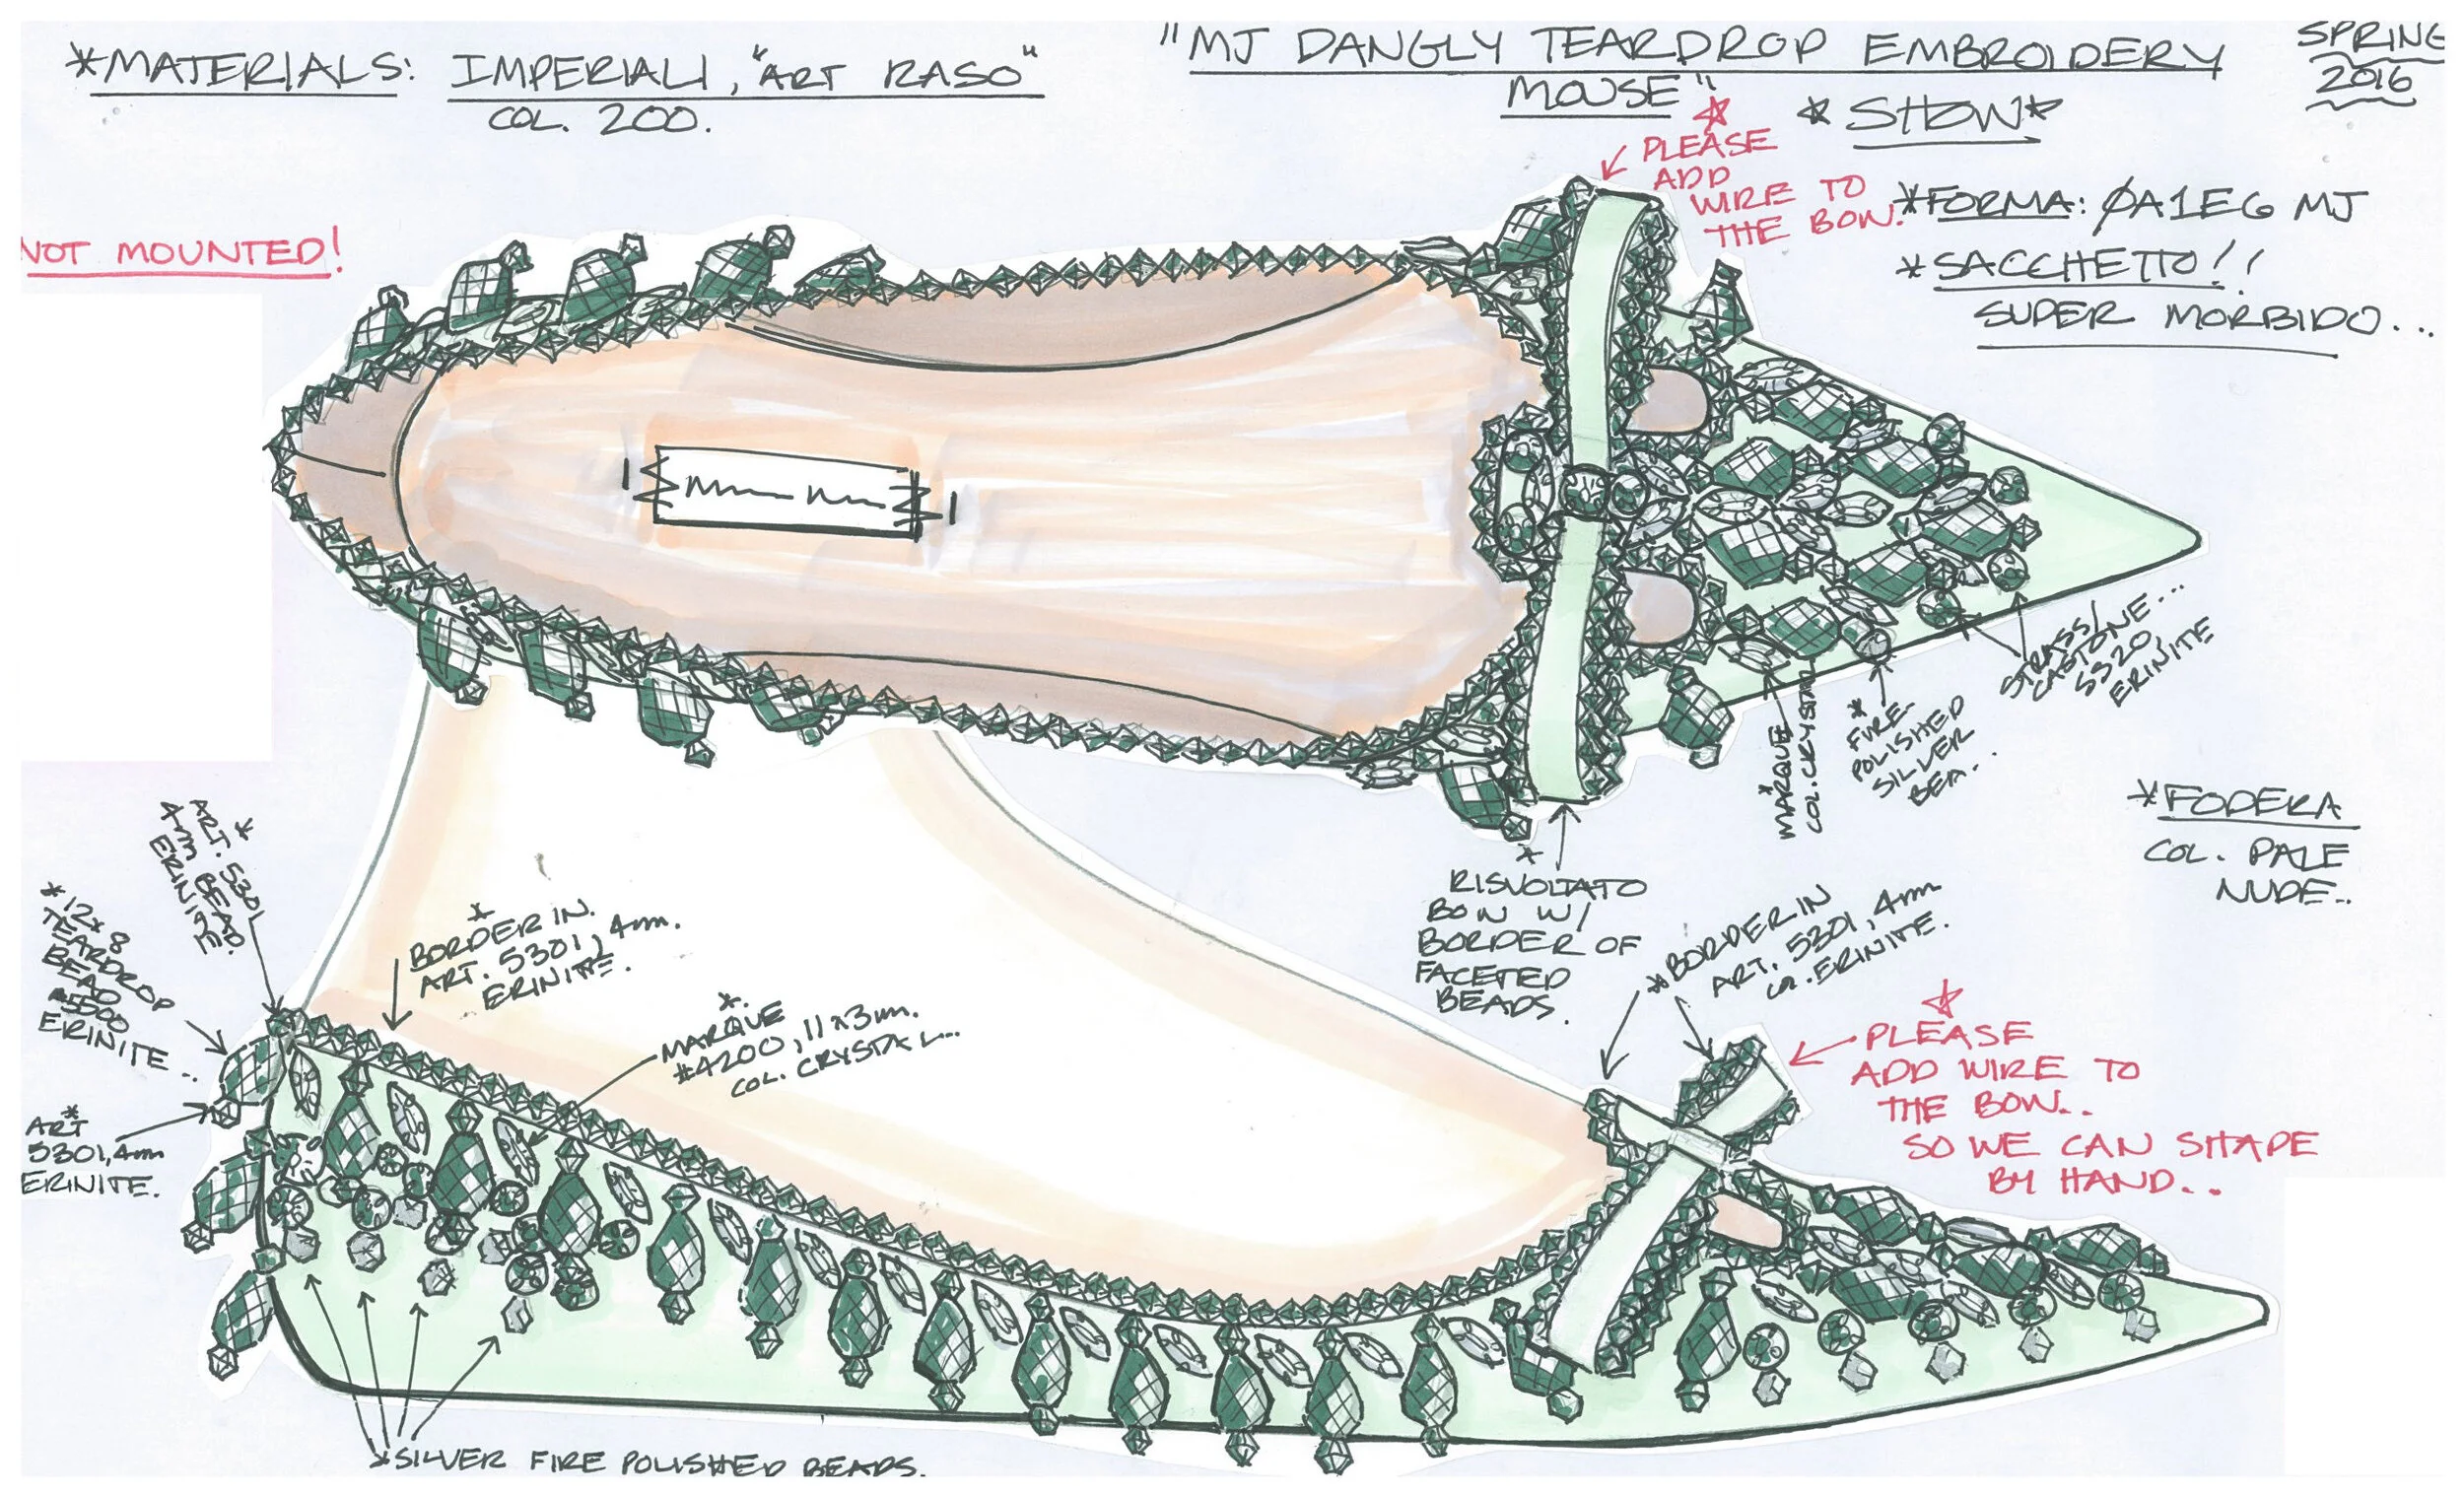 *MATERIALS: IMPERIALI, "ART RASO"
COL. 200.
"MJ DANGLY TEARDROP EMBROIDERY
MOUSE"
* SHOW *
SPRING
2016
NOT MOUNTED!
PLEASE
ADD
WIRE TO
THE BOW.
*FORMA: ØA1EG MJ
*SACCHETTO!!
SUPER MORBIDO...
STRASS/
CASTONE...
SS20,
ERINITE
*
FIRE
POLISHED
SILVER
BEA...
*
MARQUE
COL. CRYSTAL
*FODERA
COL. PALE
NUDE..
*
RISVOLTATO
BOW W/
BORDER OF
FACETED
BEADS.
*BORDER IN
ART. 5301, 4mm
COL. ERINITE.
*
ART. 5301
4mm BEAD.
ERINITE
*12x8
TEARDROP
BEAD
#5500
ERINITE..
*
BORDER IN.
ART. 5301, 4mm.
ERINITE.
*.
MARQUE
#4200, 11x3mm.
COL. CRYSTAL...
*
ART
5301, 4mm
ERINITE.
PLEASE
ADD WIRE TO
THE BOW..
SO WE CAN SHAPE
BY HAND..
*SILVER FIRE POLISHED BEADS.